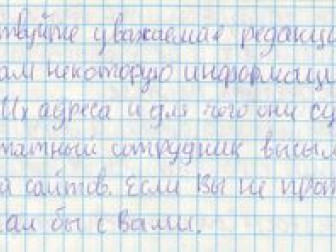 ствуйте уважаемая редакци
ам некоторую информаци
Их адреса и для чего они су
татный сотрудник высым
й сайтов. Если Вы не прот
ал бы с Вами.